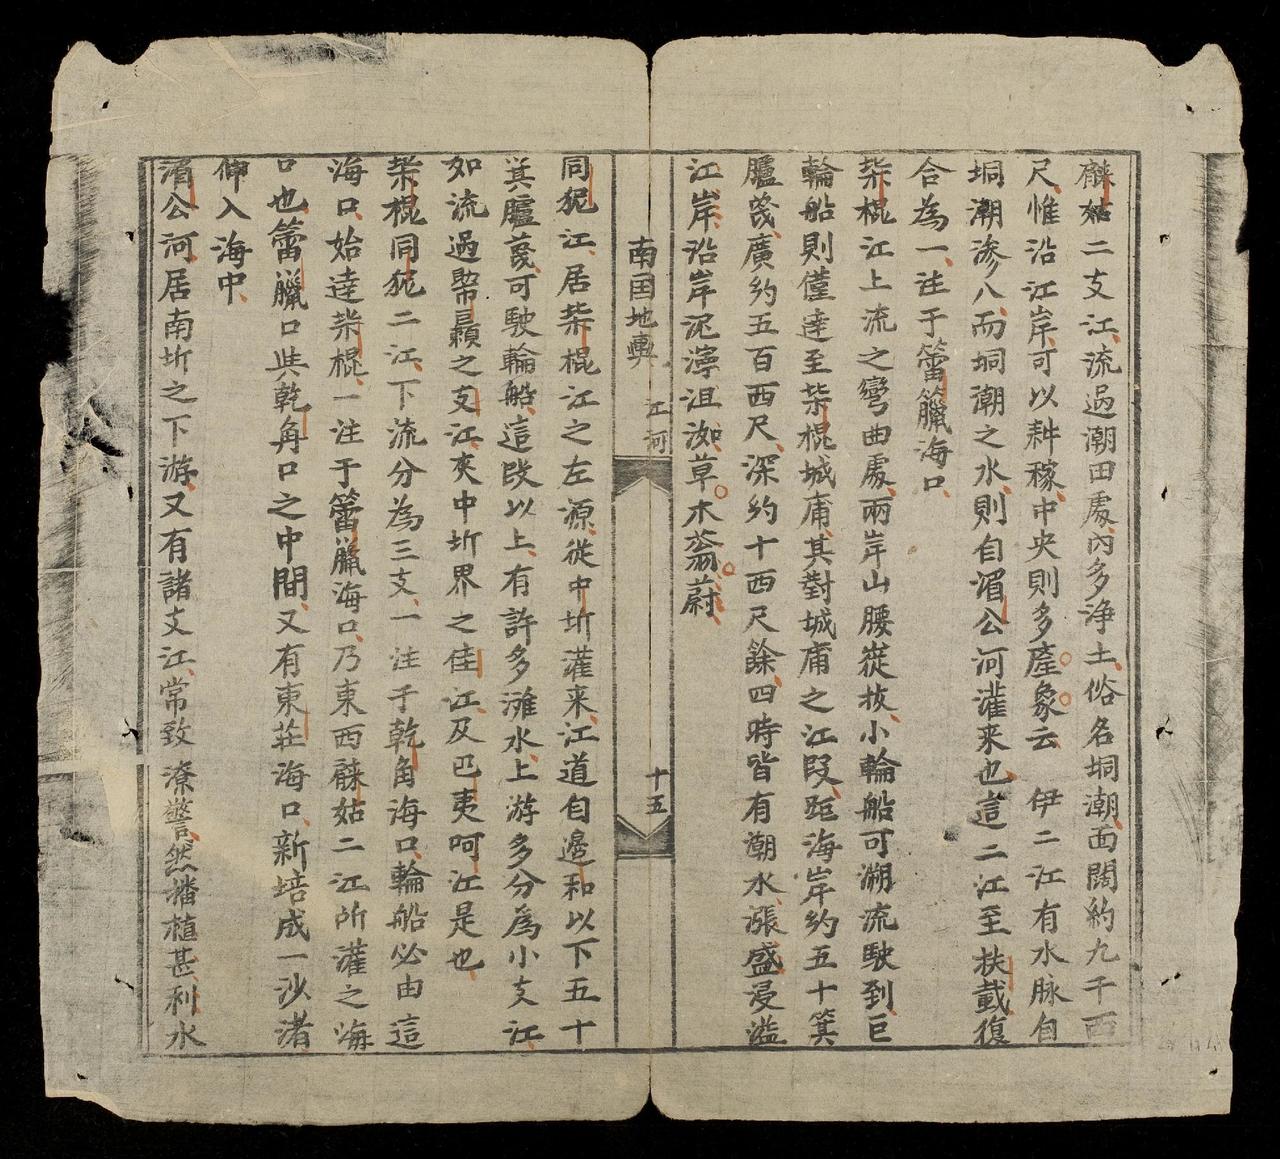 蘇姑二支江流過潮田處內多淨土俗名垌潮面闊約九千西
尺惟沿江岸可以耕稼中央則多產象云　伊二江有水脉自
垌潮滲入而垌潮之水則自湄公河灌来也這二江至扶戴復
合為一注于簹臘海口
柴棍江上流之彎曲處兩岸山腰嵷拔小輪船可溯流駛到巨
輪船則僅達至柴棍城庯其對城庯之江段距海岸約五十箕
臚蔑廣約五百西尺深約十西尺餘四時皆有潮水漲盛浸溢
江岸沿岸泥濘沮洳草木蓊蔚
南国地輿　江河　十五
同狔江居柴棍江之左源從中圻灌来江道自邊和以下五十
箕臚蔑可駛輪船這段以上有許多灘水上游多分為小支江
如流過幣顯之支江夾中圻界之佳江及巴夷呵江是也
柴棍同狔二江下流分為三支一注于乾角海口輪船必由這
海口始達柴棍一注于簹臘海口乃東西蘇姑二江所灌之海
口也簹臘口與乾角口之中間又有東荘海口新培成一沙渚
伸入海中
湄公河居南圻之下游又有諸支江常致潦警然播植甚利水